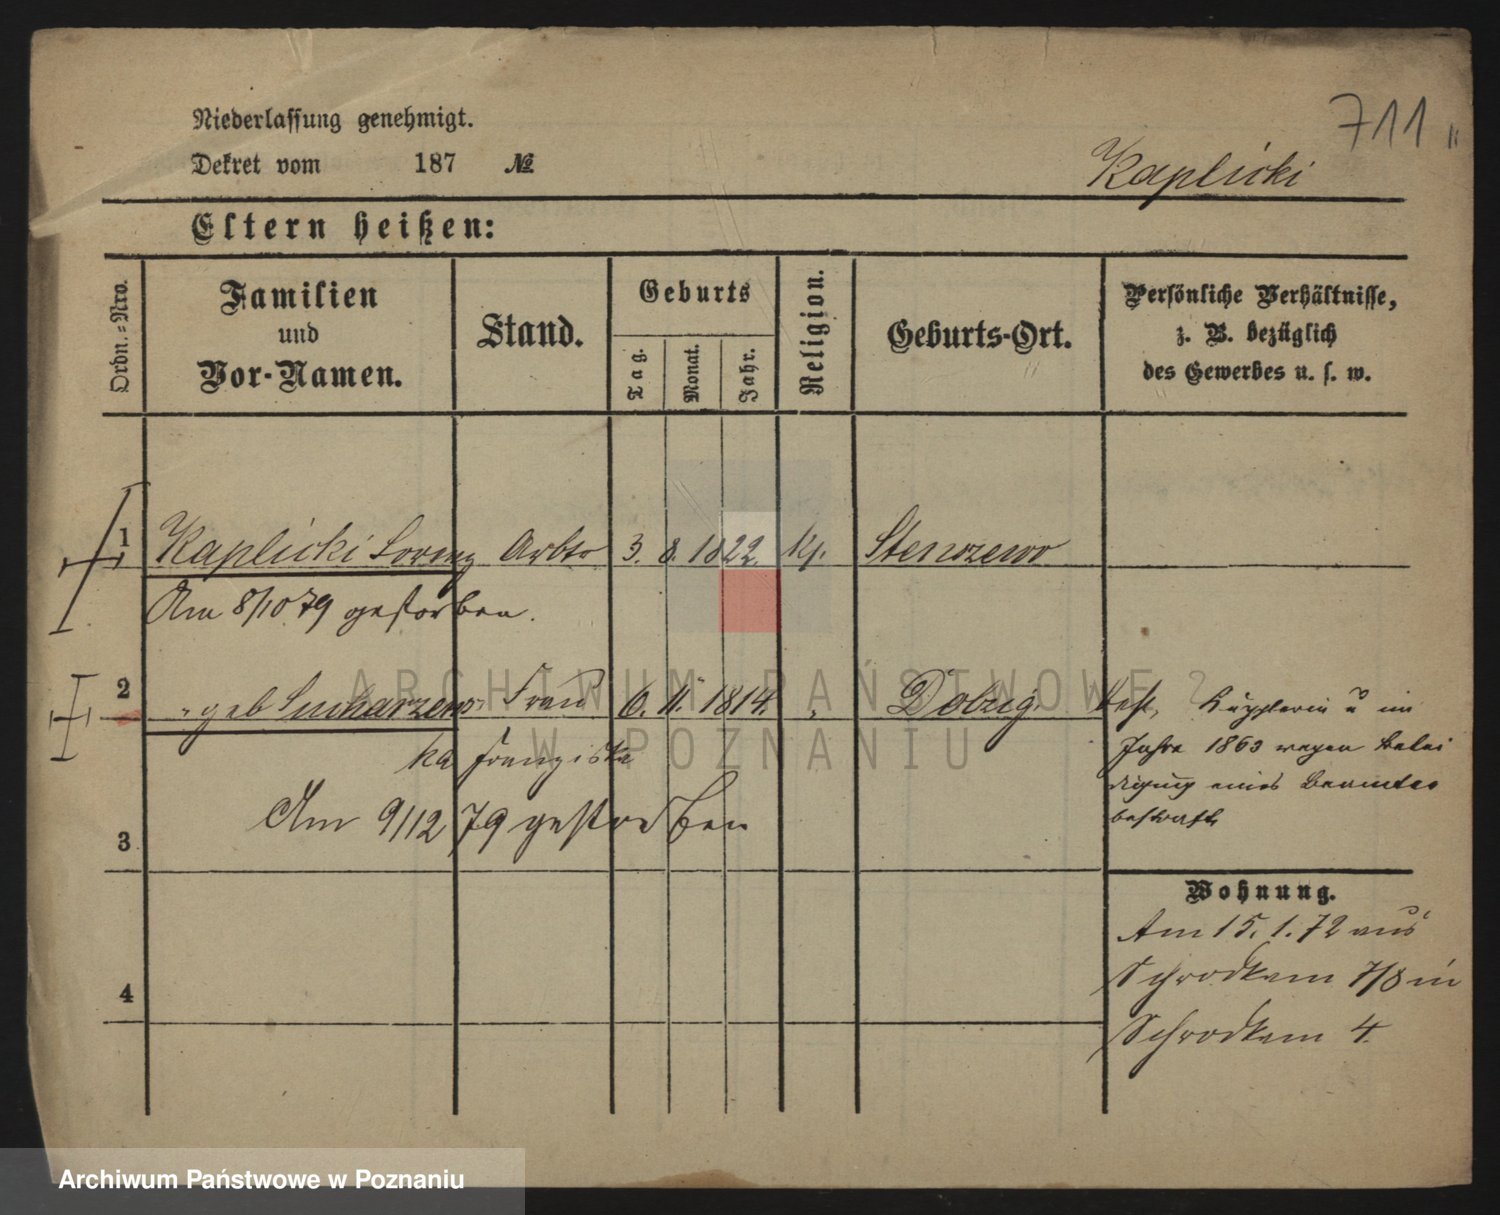 711
Niederlassung genehmigt.
Dekret vom 187 №
Kaplicki
Eltern heißen:
Ordn.-Nro.
Familien und Vor-Namen.
Stand.
Geburts
Tag. Monat. Jahr.
Religion.
Geburts-Ort.
Persönliche Verhältnisse,
z. B. bezüglich
des Gewerbes u. s. w.
1 Kaplicki Lorenz Arbtr 3. 8. 1822. kt. Stenszewo
Am 8/10 79 gestorben.
2 " geb Sucharzews- Frau 6. 11. 1814. " Dobrig
ka Franziska
Am 9/12 79 gestorben
Kupplerin u im
Jahre 1863 wegen Belei
digung eines Beamten
bestraft
3
Wohnung.
Am 15. 1. 72 aus
Schrodkam 7/8 in
Schrodkam 4.
4
ARCHIWUM PAŃSTWOWE
W POZNANIU
Archiwum Państwowe w Poznaniu